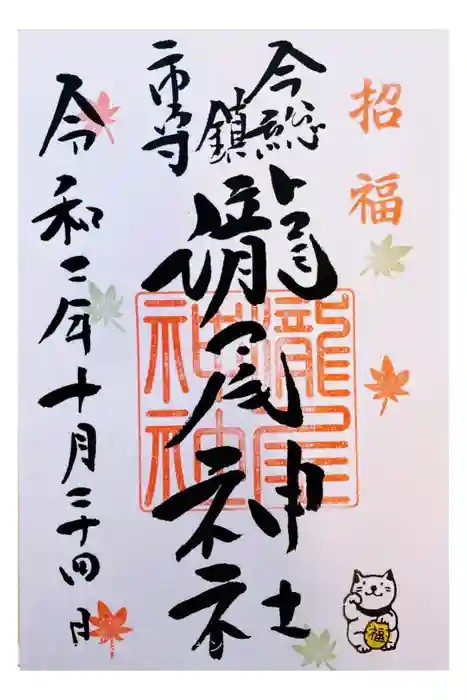 招福
今市
総鎮守
瀧尾神社
瀧尾神社
令和二年十月二十四日
福